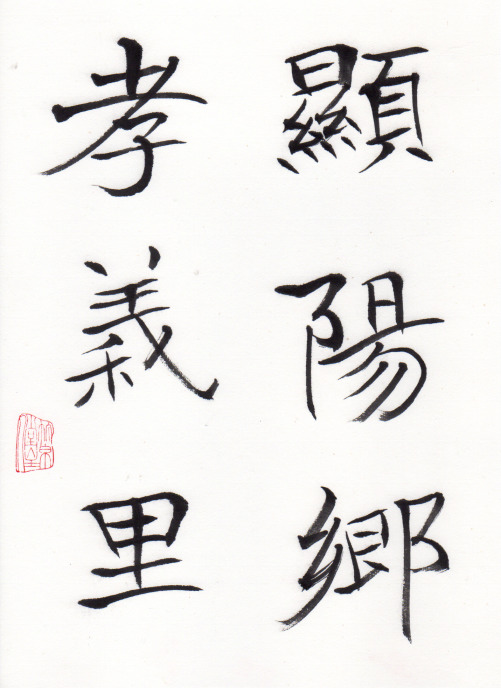 顯陽鄉
孝義里